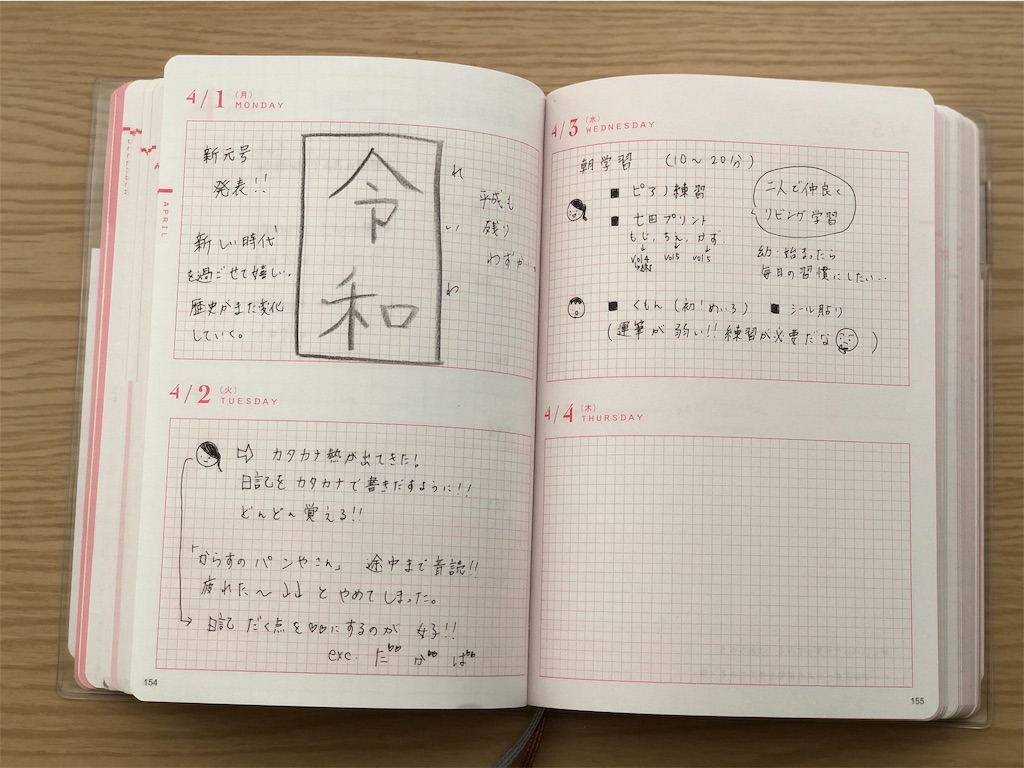 APRIL
4/1 (月)
MONDAY
新元号
発表!!
新しい時代
を過ごせて嬉しい。
歴史がまた変化
していく。
令和
れいわ
平成も
残り
わずか…
4/2 (火)
TUESDAY
⇨ カタカナ熱が出てきた!
日記をカタカナで書きだすように!!
どんどん覚える!!
「からすのパンやさん」 途中まで音読!!
疲れた〜↓↓とやめてしまった。
→ 日記 だく点を♡♡にするのが 女子!!
exc. た♡♡ か♡♡ は♡♡
154
4/3 (水)
WEDNESDAY
朝学習 (10〜20分)
■ ピアノ練習
■ 七田プリント
もじ, ちえ, かず
↓ ↓ ↓
vol4 vol5 vol5
二人で仲良く
リビング学習
幼・始まったら
毎日の習慣にしたい..
■ くもん (初!めいろ) ■ シール貼り
(運筆が弱い!! 練習が必要だな)
4/4 (木)
THURSDAY
155